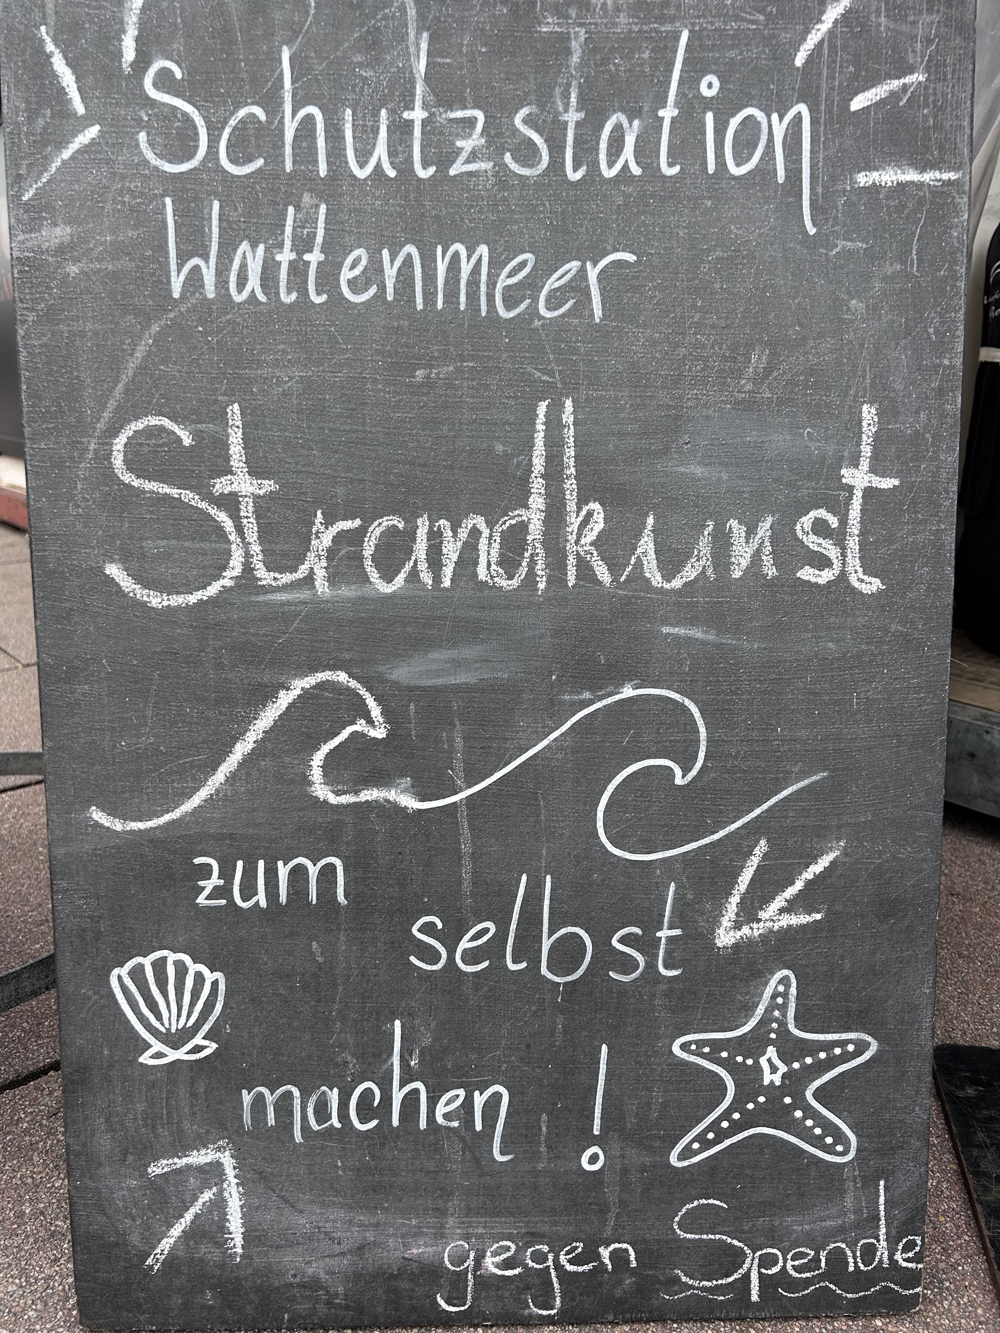 Schutzstation
Wattenmeer
Strandkunst
zum
selbst
machen!
gegen Spende